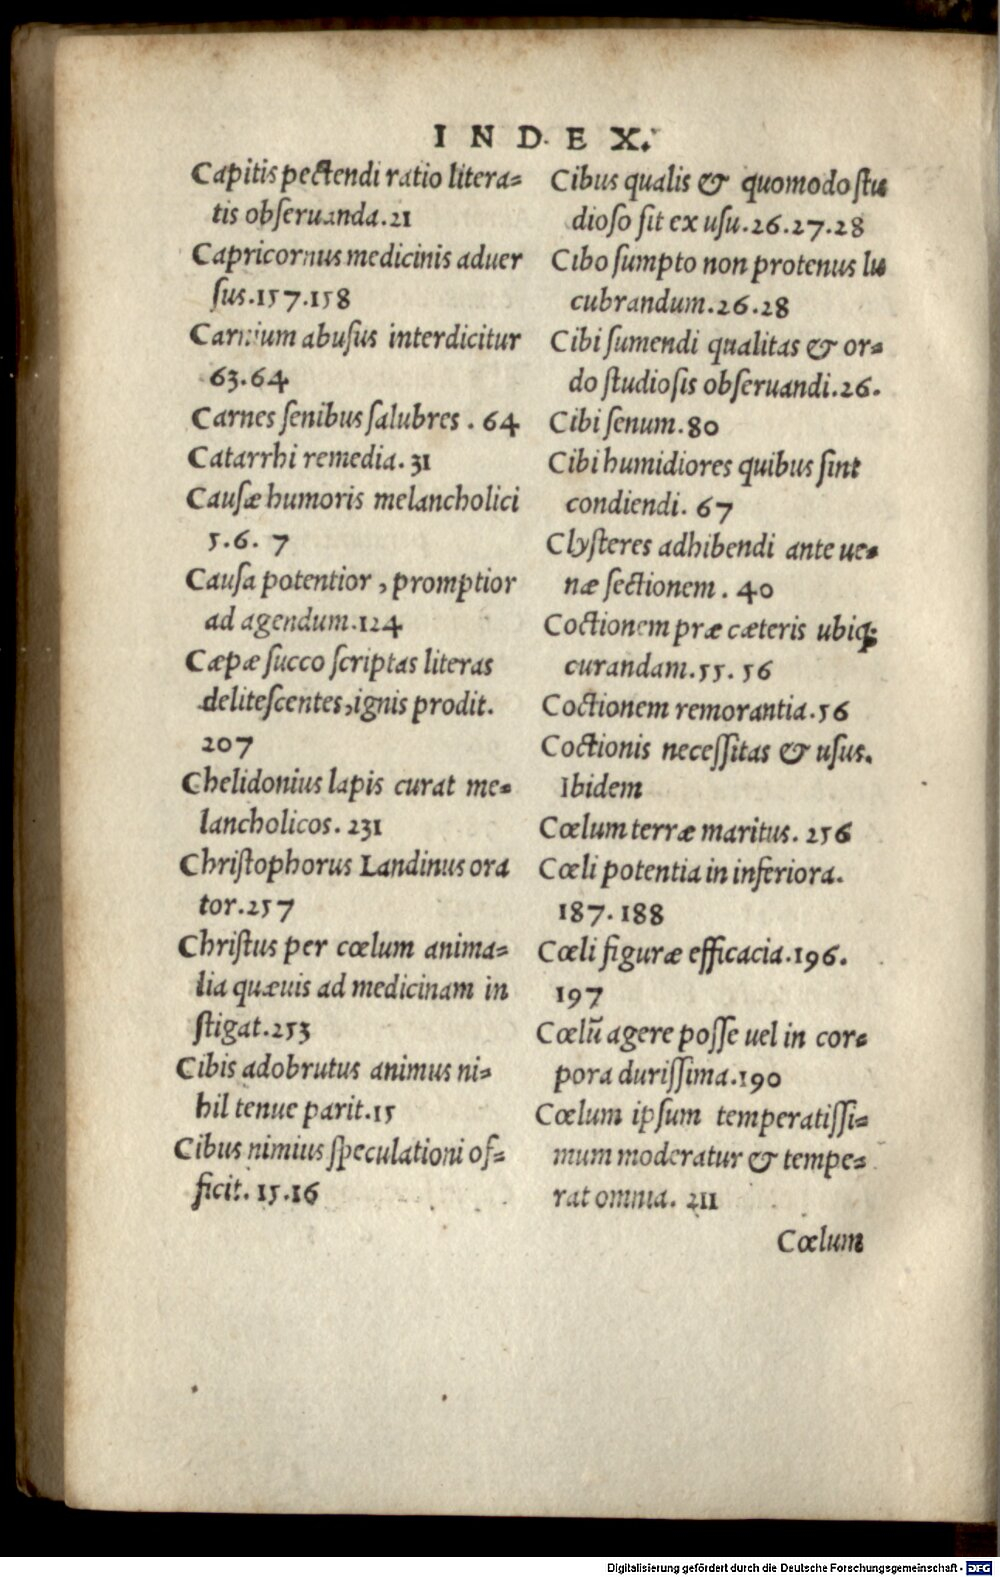 INDEX.
Capitis pectendi ratio litera=
tis obſeruanda.21
Capricornus medicinis aduer
ſus.157.158
Carnium abuſus interdicitur
63.64
Carnes ſenibus ſalubres . 64
Catarrhi remedia. 31
Cauſæ humoris melancholici
5.6. 7
Cauſa potentior , promptior
ad agendum.124
Cæpæ ſucco ſcriptas literas
deliteſcentes,ignis prodit.
207
Chelidonius lapis curat me=
lancholicos. 231
Chriſtophorus Landinus ora
tor.257
Chriſtus per cœlum anima=
lia quæuis ad medicinam in
ſtigat.253
Cibis adobrutus animus ni=
hil tenue parit.15
Cibus nimius ſpeculationi of=
ficit. 15.16
Cibus qualis & quomodo ſtu
dioſo ſit ex uſu.26.27.28
Cibo ſumpto non protenus lu
cubrandum.26.28
Cibi ſumendi qualitas & or=
do ſtudioſis obſeruandi.26.
Cibi ſenum.80
Cibi humidiores quibus ſint
condiendi. 67
Clyſteres adhibendi ante ue=
næ ſectionem . 40
Coctionem præ cæteris ubiq;
curandam.55. 56
Coctionem remorantia.56
Coctionis neceſſitas & uſus.
Ibidem
Cœlum terræ maritus. 256
Cœli potentia in inferiora.
187. 188
Cœli figuræ efficacia.196.
197
Cœlū agere poſſe uel in cor=
pora duriſſima.190
Cœlum ipſum temperatiſſi=
mum moderatur & tempe=
rat omnia. 211
Cœlum
Digitalisierung gefördert durch die Deutsche Forschungsgemeinschaft - DFG